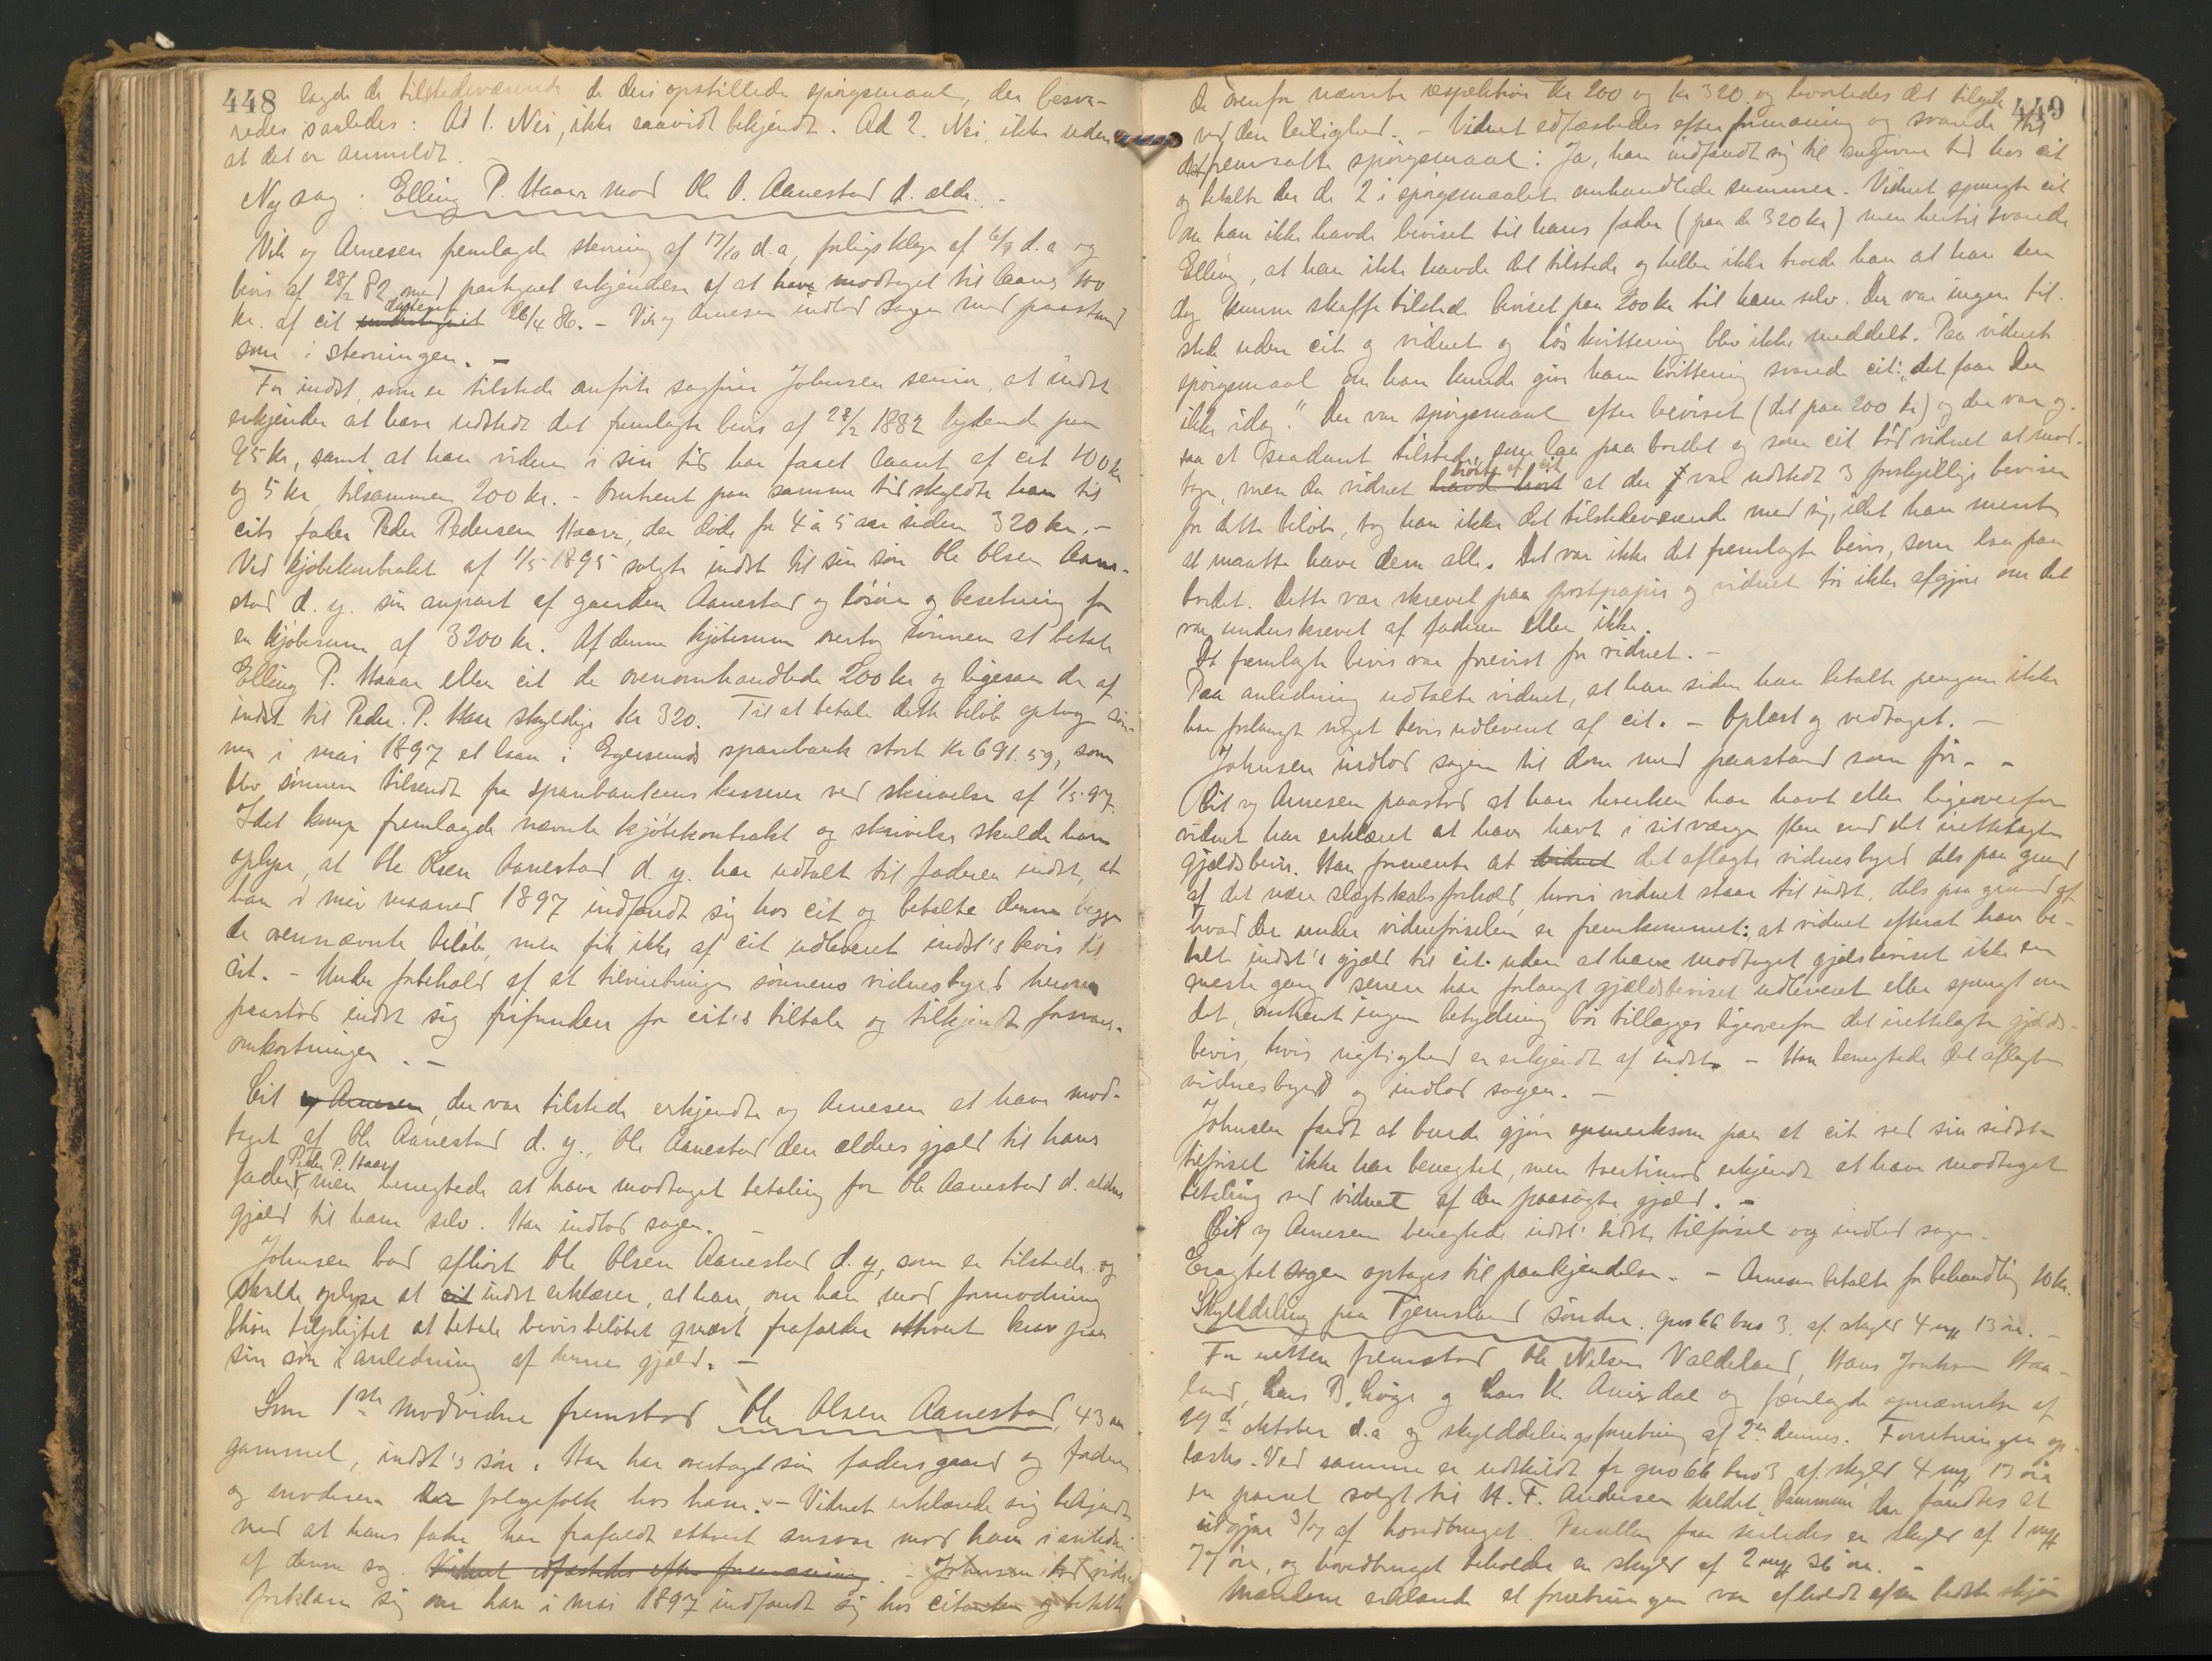 448 lagde de tilstedeværende de deri opstillede spørgsmaal, der besva-
redes saaledes: Ad 1. Nei, ikke saavidt bekjendt. Ad 2. Nei, ikke uden
at det er anmeldt.
Ny sag: Elling P. Haaar mod Ole O. Aanestad d. ældre.
Vik og Arnesen fremlagde stevning af 17/10 d.a, forligsklage af 6/9 d.a og
bevis af 28/2 82 med paategnet erkjendelse af at have modtaget til laans 100
kr. af cit dateret 26/4 86. - Vik og Arnesen indlod sagen med paastand
som i stevningen. -
For indst, som er tilstede anførte sagfører Johnsen senior, at indst
erkjender at have udstedt det fremlagte bevis af 28/2 1882 lydende paa
95 kr, samt at han videre i sin tid har faaet laant af cit 100 kr
og 5 kr, tilsammen 200 kr. - Omtrent paa samme tid skyldte han til
cits fader Peder Pedersen Haaar, der døde for 4 à 5 aar siden 320 kr. -
Ved kjøbekontrakt af 1/5 1895 solgte indst til sin søn Ole Olsen Aane-
stad d. y. sin anpart af gaarden Aanestad og løsøre og besetning for
en kjøbesum af 3200 kr. Af denne kjøbesum overtog sønnen at betale
Elling P. Haaar eller cit de ovenomhandlede 200 kr og ligesaa de af
indst til Peder P. Haar skyldige kr 320. Til at betale dette beløb optog søn-
nen i mai 1897 et laan i Egersunds sparebank stort kr 691.59, som
blev sønnen tilsendt fra sparebankens kasserer ved skrivelse af 1/5 97.
Idet komp fremlagde nævnte kjøbekontrakt og skrivelse skulde han
oplyse, at Ole Olsen Aanestad d. y. har udtalt til faderen indst, at
han i mai maaned 1897 indfandt sig hos cit og betalte denne begge
de ovennævnte beløb, men fik ikke af cit udleveret indst's bevis til
cit. - Under forbehold af at tilveiebringe sønnens vidnesbyrd herom
paastod indst sig frifunden for cit's tiltale og tilkjendt sagsom-
omkostninger. -
Cit og Arnesen, der var tilstede erkjendte og Arnesen at have mod-
taget af Ole Aanestad d. y., Ole Aanestad den ældres gjæld til hans
fader Peder P. Haar, men benegtede at have modtaget betaling for Ole Aanestad d. ældres
gjæld til ham selv. Han indlod sagen. -
Johnsen bad afhørt Ole Olsen Aanestad d. y, som er tilstede og
skulde oplyse at cit indst erklærer, at han, om han mod formodning
bliver tilpligtet at betale bevisbeløbet qvæst. frafalder ethvert krav paa
sin søn i anledning af denne gjæld. -
Som 1ste modvidne fremstod Ole Olsen Aanestad, 43 aar
gammel, indst's søn. Han har overtaget sin faders gaard og faderen
og moderen er følgefolk hos ham. - Vidnet erklærede sig bekjendt
med at hans fader har frafaldt ethvert ansvar mod ham i anledning
af denne sag. Vidnet edfæstedes efter formaning. - Johnsen bad vidnet
forklare sig om han i mai 1897 indfandt sig hos citanten og betalte
449
de ovenfor nævnte respektive kr 200 og kr 320 og hvorledes det tilgik
ved den leilighed. - Vidnet edfæstedes efter formaning og svarede til
det fremsatte spørgsmaal: Ja, han indfandt sig til angivne tid hos cit
og betalte der de 2 i spørgsmaalet omhandlede summer. Vidnet spurgte cit
om han ikke havde beviset til hans fader (paa de 320 kr) men hertil svarede
Elling, at han ikke havde det tilstede og heller ikke troede han at han den
dag kunne skaffe tilstede beviset paa 200 kr til ham selv. Der var ingen til-
stede uden cit og vidnet og løs kvittering blev ikke meddelt. Paa vidnets
spørgsmaal om han kunde give ham kvittering svarede cit: "det faar du
ikke idag." Der var spørgsmaal efter beviset (det paa 200 kr) og der var og-
saa et saadant tilstede, som laa paa bordet og som cit bød vidnet at mod-
tage, men da vidnet hørte af cit at der var udstedt 3 forskjellige beviser
for dette beløb, tog han ikke det tilstedeværende med sig, idet han mente
at maatte have dem alle. Det var ikke det fremlagte bevis, som laa paa
bordet. Dette var skrevet paa postpapir og vidnet tør ikke afgjøre om det
var underskrevet af faderen eller ikke.
Det fremlagte bevis var forevist for vidnet. -
Paa anledning udtalte vidnet, at han siden han betalte pengene ikke
har forlangt noget bevis udleveret af cit. - Oplæst og vedtaget. -
Johnsen indlod sagen til dom med paastand som før. -
Cit og Arnesen paastod at han hverken har havt eller ligeoverfor
vidnet har erklæret at have havt i sit værge flere end det irettelagte
gjældsbevis. Han formente at vidnet det aflagte vidnesbyrd dels paa grund
af det nære slægtskabsforhold, hvori vidnet staar til indst, dels paa grund af
hvad der under vidneførselen er fremkommet: at vidnet efterat have be-
talt indst's gjæld til cit uden at have modtaget gjældsbeviset ikke en
neste gang senere har forlangt gjældsbeviset udleveret eller spurgt om
det, omtrent ingen betydning bør tillægges ligeoverfor det irettelagte gjælds-
bevis, hvis rigtighed er erkjendt af indst. - Han benegtede det aflagte
vidnesbyrd og indlod sagen. -
Johnsen fandt at burde gjøre opmerksom paa at cit ved sin sidste
tilførsel ikke har benegtet, men tvertimod erkjendt at have modtaget
betaling ved vidnet af den paasøgte gjæld. -
Cit og Arnesen benegtede indst's sidste tilførsel og indlod sagen.
Eragtet: Sagen optages til paakjendelse. - Arnesen betalte for behandling 10 kr.
Skylddeling paa Tjemsland søndre. gno 66 bno 3 af skyld 4 mk 13 øre. -
For retten fremstod Ole Nilsen Valdeland, Hans Jonson Haa-
land, Lars B. Høge og Lars K. Auisdal og fremlagde opnævnelse af
29de oktober d.a og skylddelingsforretning af 2den dennes. Forretningen op-
læstes. Ved samme er udskildt fra gno 66 bno 3 af skyld 4 mk 13 øre
en parcel solgt til H. F. Andersen kaldet "Dammen" der fandtes at
udgjøre 3/7 af hovedbruget. Parcellen faar saaledes en skyld af 1 mk
77 øre, og hovedbruget beholder en skyld af 2 mk 36 øre. -
Mændene erklærede at forretningen var afholdt efter bedste skjøn